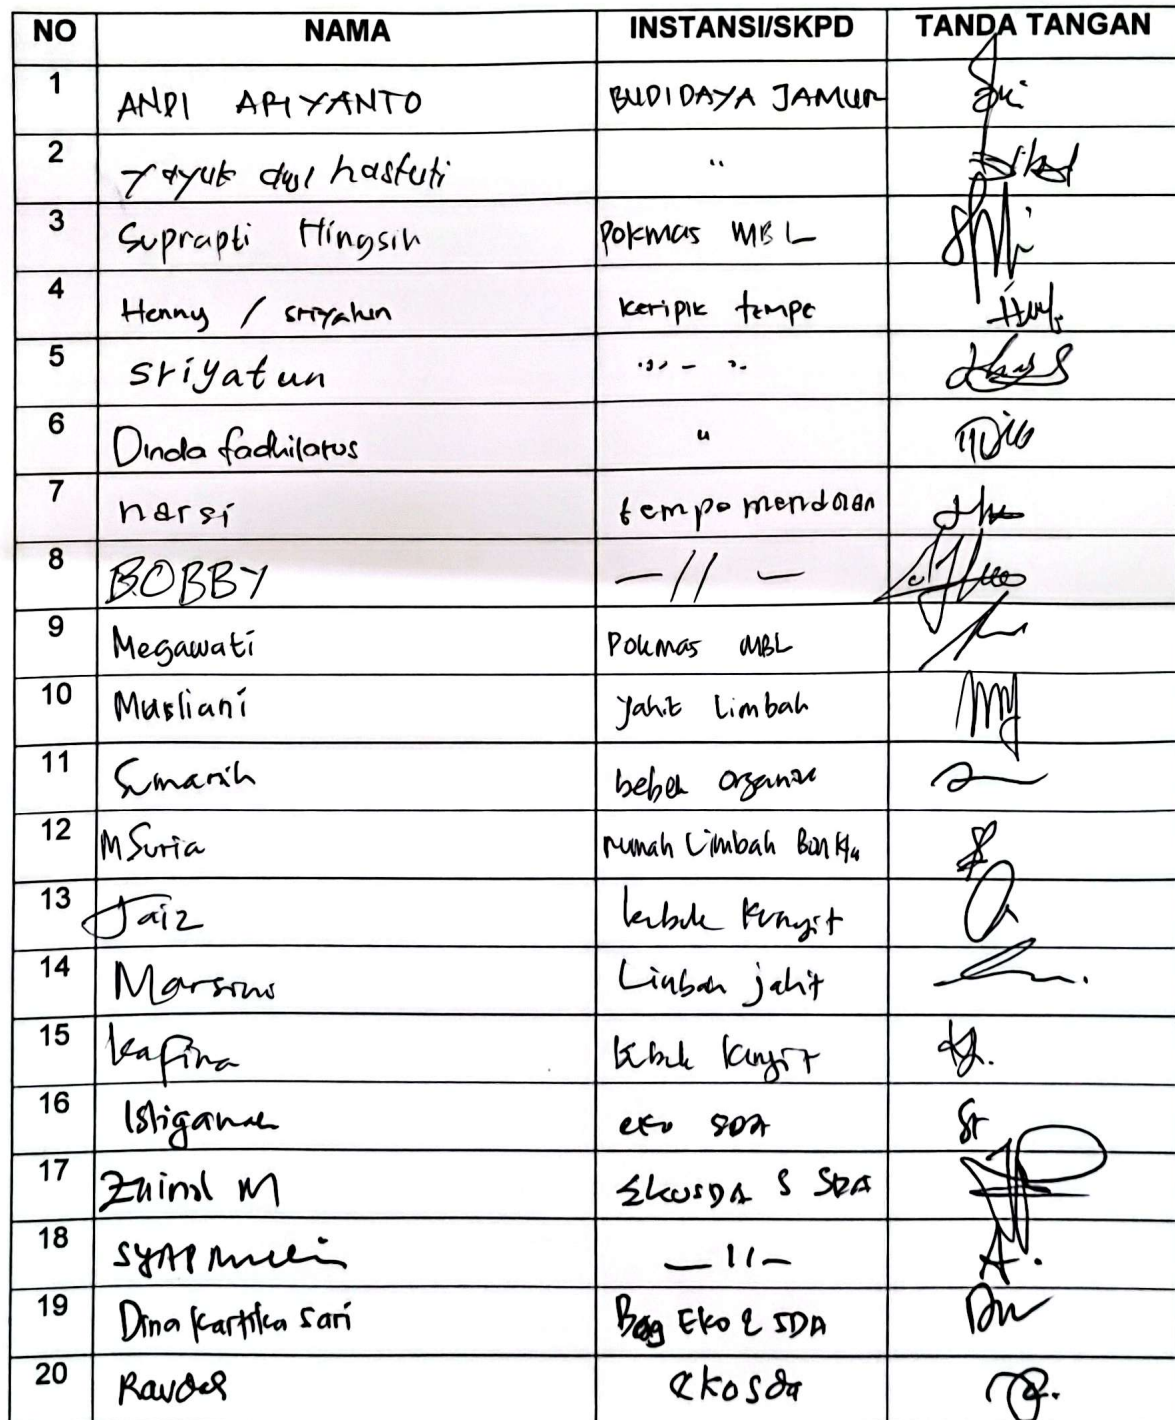 NO NAMA INSTANSI/SKPD TANDA TANGAN
1 ANDI ARIYANTO BUDIDAYA JAMUR
2 Yayuk dwi hastuti "
3 Suprapti Hingsih Pokmas MBL
4 Henny / sriyatun keripik tempe
5 sriyatun " - "
6 Dinda fadhilatus "
7 narsi tempe mendoan
8 BOBBY - // -
9 Megawati Pokmas MBL
10 Musliani Jahit Limbah
11 Sumarsih bebek organik
12 M Suria rumah Limbah
13 Jaiz kebuk kunyit
14 Marsini Limbah jahit
15 kafina kebuk kunyit
16 eko SDA
17 Zainal M EkoSDA
18 - 11 -
19 Dina Kartika Sari Bag Eko & SDA
20 ekosda